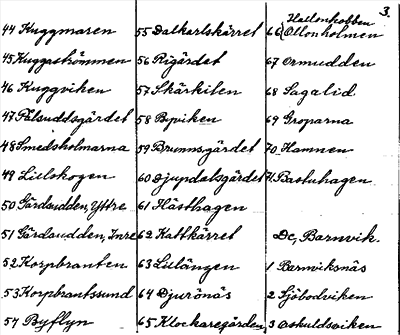 3.
44 Kuggmaren
45 Kuggströmmen
46 Kuggviken
47 Pålsuddsgärdet
48 Smedsholmarna
49 Lillskogen
50 Gärdsudden, Yttre
51 Gärdsudden, Inre
52 Korpbranten
53 Korpbrantssund
54 Byflyn
55 Dalkarlskärret
56 Rigärdet
57 Skärkilen
58 Byviken
59 Brunnsgärdet
60 Djupdalsgärdet
61 Hästhagen
62 Kattkärret
63 Lillängen
64 Djurönäs
65 Klockaregården
Hallonhobben
66 Ollonholmen
67 Ormudden
68 Sagalid
69 Groparna
70 Hamnen
71 Bastuhagen
De, Barnvik.
1 Barnviksnäs
2 Sjöbodviken
3